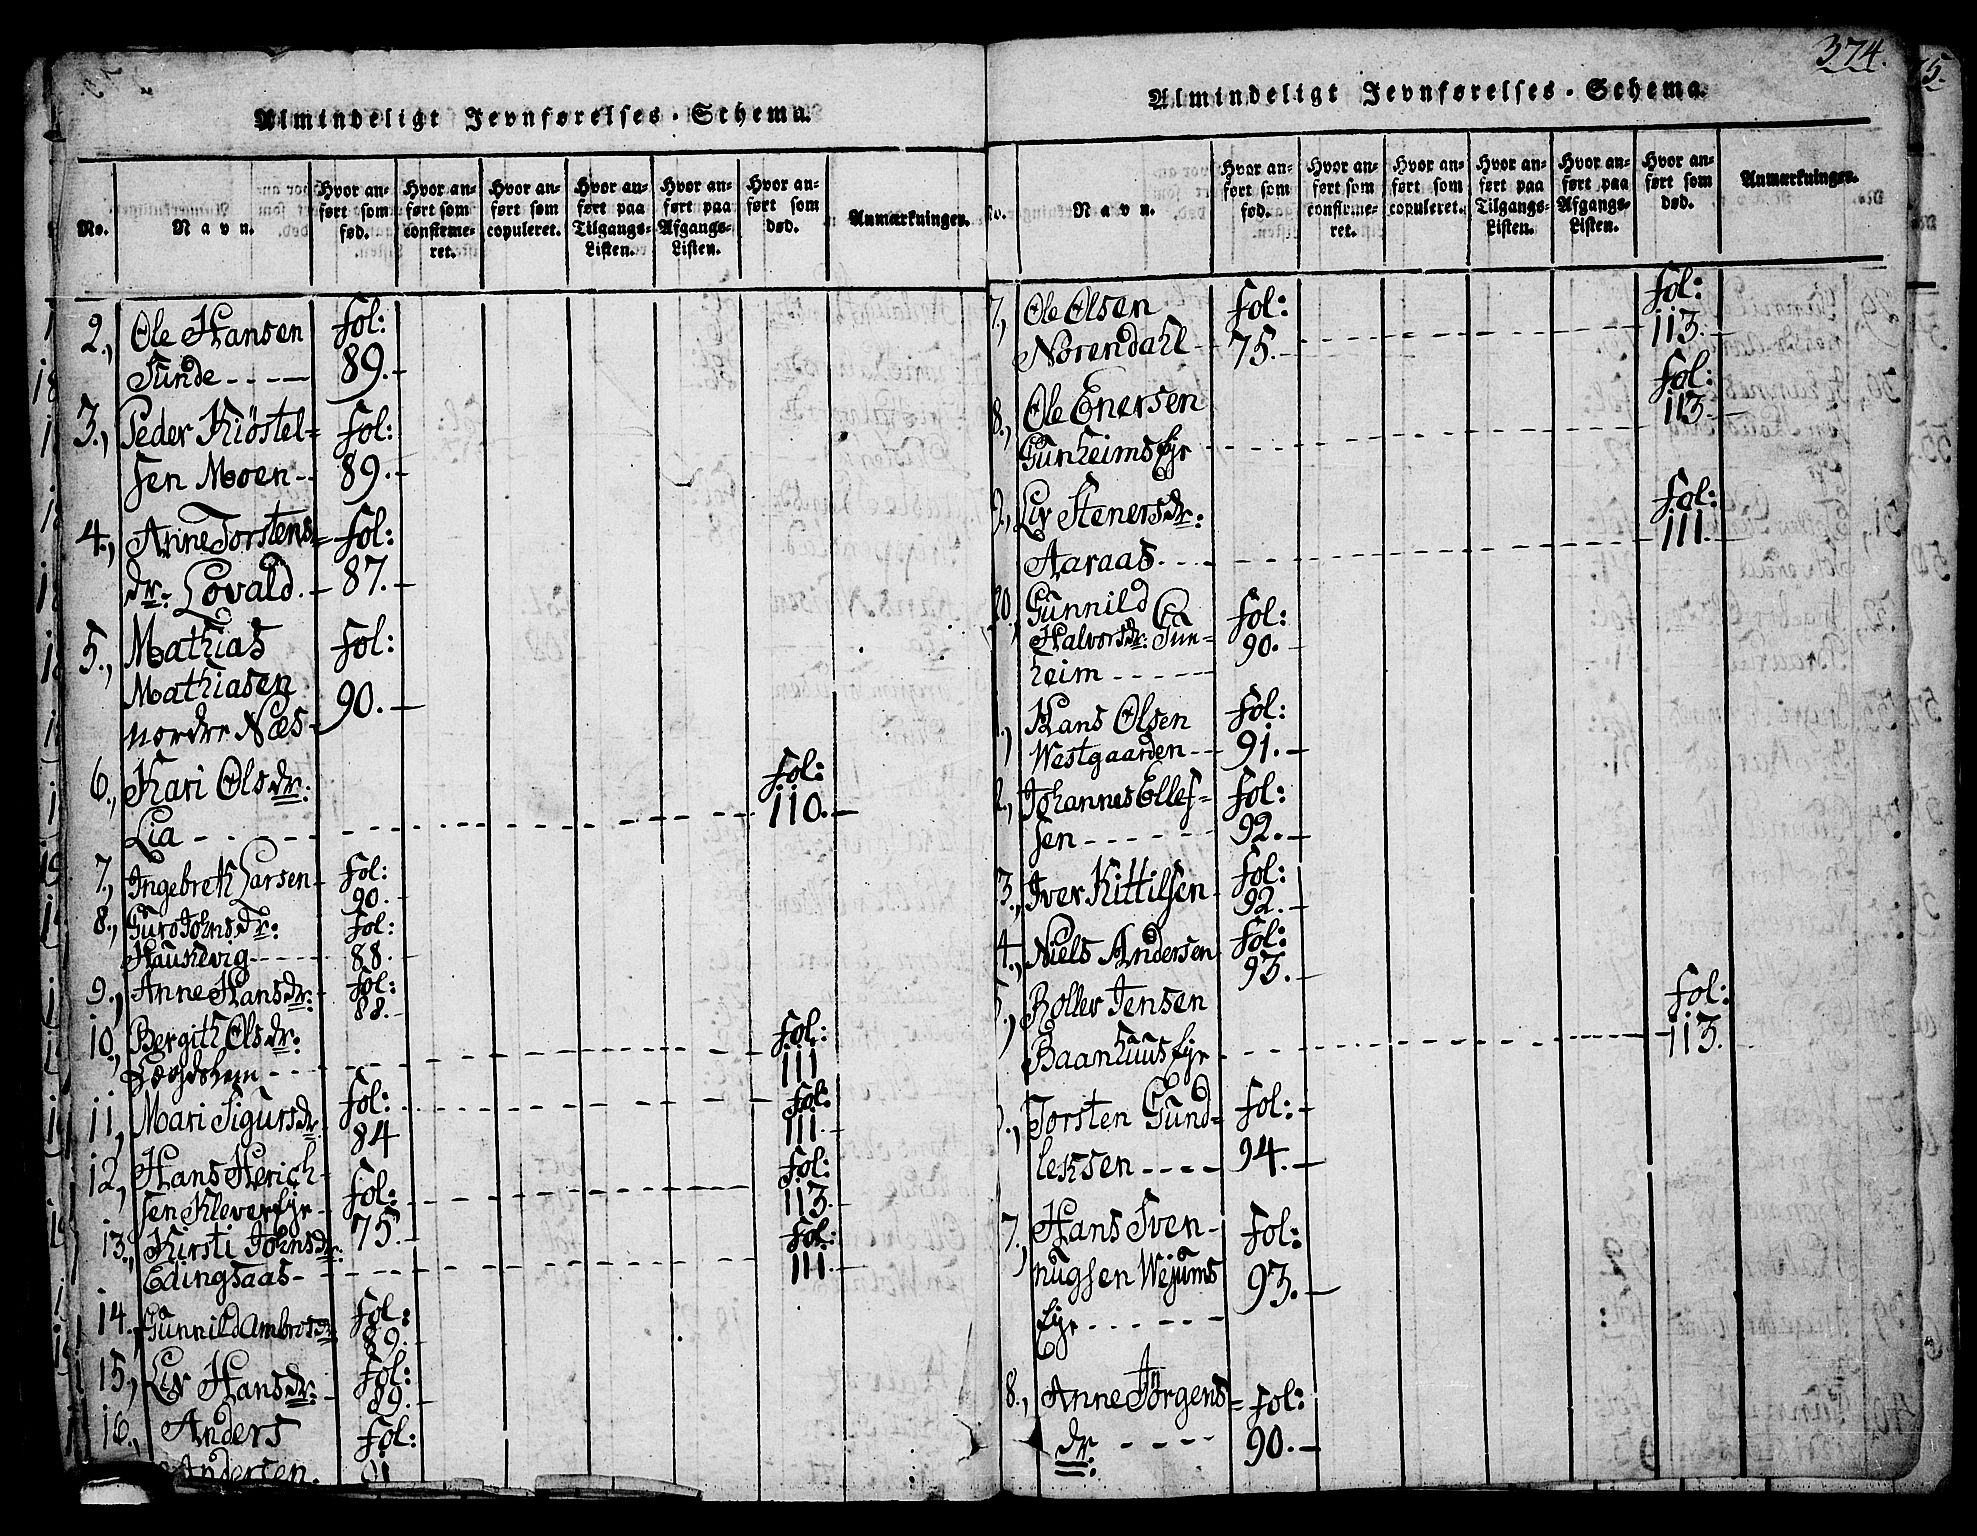 Almindeligt Jevnførelses-Schema.
No.
Navn.
Hvor anført som fød.
Hvor anført som confirmeret.
Hvor anført som copuleret.
Hvor anført paa Tilgangs-Listen.
Hvor anført paa Afgangs-Listen.
Hvor anført som død.
Anmærkninger.
2., Ole Hansen Fol:
Tunde ---- 89.
3., Peder Kiöstel= Fol:
sen Moen-- 89.
4., Anne Torstens= Fol:
dr: Lovald.- 87.
5., Mathias Fol:
Mathiasen
nordre Næs- 90.
6., Kari Olsdr: Fol:
Lia ---- 110.
7., Ingebreth Larsen Fol:
90.
8., Guro Johnsdr: Fol:
Haukevig---- 88.
9., Anne Hansdr: Fol:
88.
10., Bergith Olsdr: Fol:
111
11, Mari Sigursdr Fol: Fol:
84 111
12, Hans Herich- Fol: Fol:
sen Kleverejr 75. 113.
13., Kirsti Johnsdr: Fol:
Edingsaas- 111
14., Gunnild Ambrosdr Fol:
89.
15., Liv Hansdr: Fol:
89.
16., Anders Fol:
Andersen. 91
374.
Almindeligt Jevnførelses-Schema.
No.
Navn.
Hvor anført som fød.
Hvor anført som confirmeret.
Hvor anført som copuleret.
Hvor anført paa Tilgangs-Listen.
Hvor anført paa Afgangs-Listen.
Hvor anført som død.
Anmærkninger.
7., Ole Olsen Fol: Fol:
Norendahl 75. 113.
8., Ole Enersen Fol:
Gunheimsejr 113
9., Liv Stenersdr: Fol:
Aaraas. 111.
20., Gunnild
Halvorsdr: Gun- Fol:
heim ------ 90.
1., Hans Olsen Fol:
Westgaarden-- 91.
2., Johannes Ellef= Fol:
sen ----- 92.
3., Iver Kittilsen Fol:
92.
4., Niels Andersen Fol:
93.
5., Roller Jensen Fol:
Baanhuusejr 113.
6., Torsten Gund= Fol:
leksen ---- 94.
7., Hans Sven- Fol:
nugsen Wejums 93.
ejr------
8., Anne Jörgens= Fol:
dr: ---- 90.